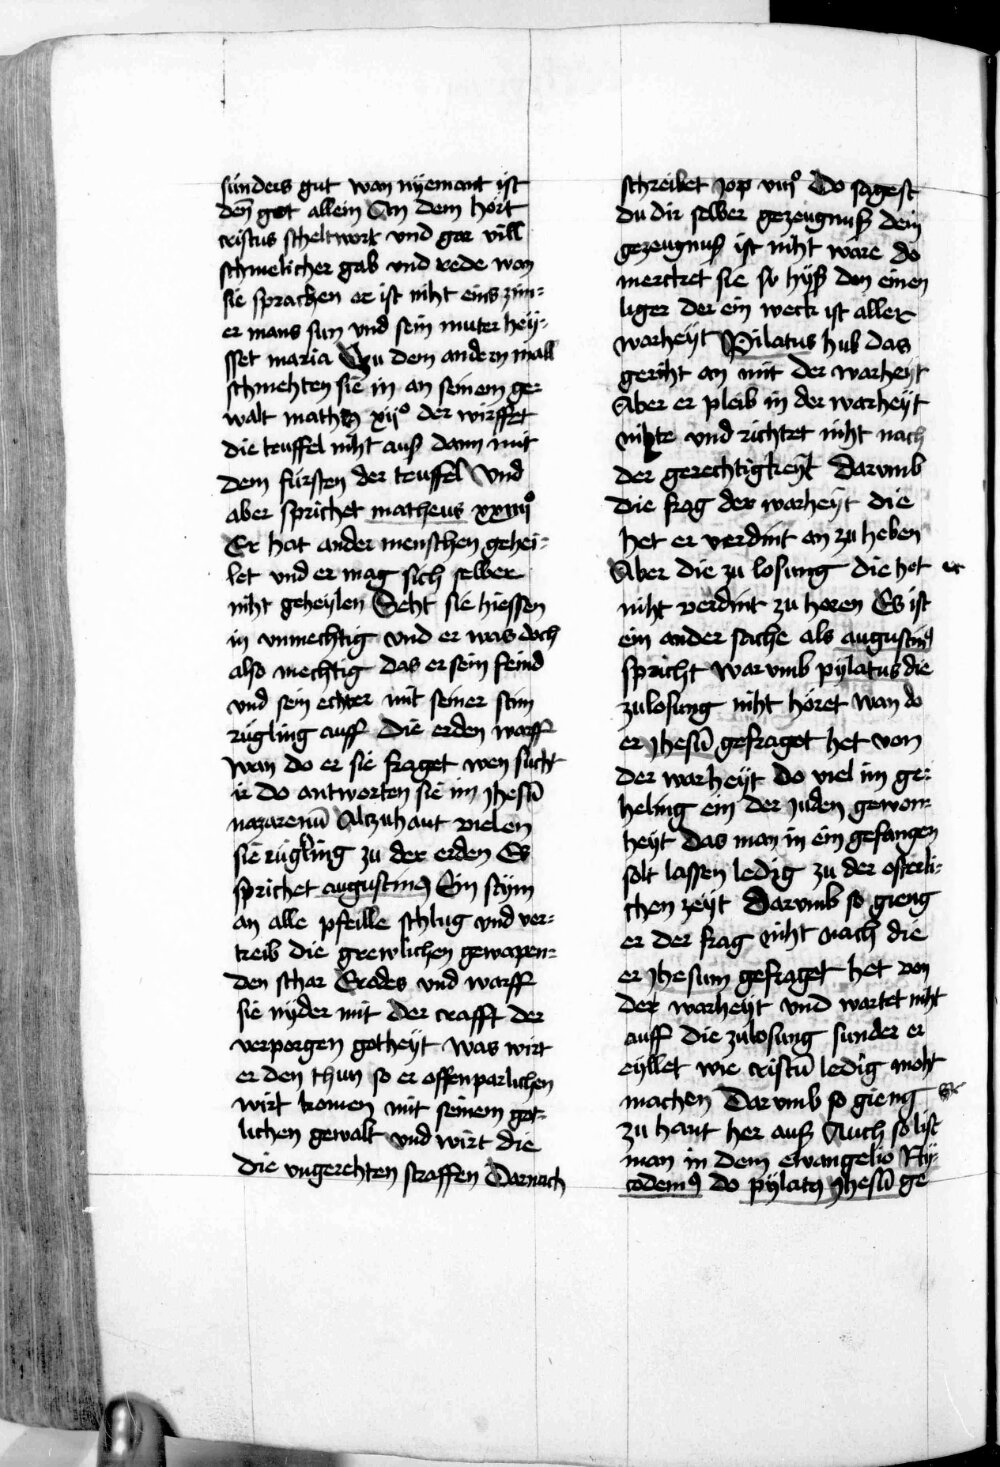 sunders gut wan nyemant ist
den got allein An dem hort
cristus scheltwort vnd gar vill
schmelicher gab vnd rede wan
sie sprachen er ist niht eins zim-
er mans sun vnd sein muter hey-
sset maria Czu dem andern mall
schmehten sie in an seinem ge-
walt mathei xij° der wirffet
die teuffel niht auß dann mit
dem fürsten der teuffel Vnd
aber sprichet matheus xxvij°
Er hat ander menschen gehei-
let vnd er mag sich selber
niht geheylen Seht sie hiessen
in vnmechtig vnd er was doch
also mechtig das er sein feind
vnd sein echter mit seiner stim
rügling auff die erden warff
wan do er sie fraget wen sucht
ir do antworten sie im Jhesū
nazarenū Alzuhant vielen
sie rügkling zu der erden Es
sprichet augustinus Ein stym
an alle pfeille schlug vnd ver-
treib die grewlichen gewapen-
den schar Erodes vnd warff
sie nyder mit der crafft der
verporgen gotheyt was wirt
er den thun so er offenparlichen
wirt komen mit seinem got-
lichen gewalt vnd wirt die
die vngerechten straffen Darnach
schreibet Jop viij° Do sagest
du dir selber gezeugnuß dein
gezeugnuß ist niht ware do
mercket sie so hyß den einen
liger der ein weck ist aller
warheyt Pilatus hub das
geriht an mit der warheyt
Aber er pleib in der warheyt
nihte vnd richtet niht nach
der gerechtigkeyt Darumb
die frag der warheyt die
het er verdint an zu heben
Aber die zu losung die het er
niht verdint zu horen Es ist
ein ander sache als augustinus
spricht warumb pylatus die
zulosung niht höret wan do
er Jhesū gefraget het von
der warheyt do viel im ge-
heling ein der Juden gewon-
heyt das man in ein gefangen
solt lassen ledig zu der osterli-
chen zeyt Darumb so gieng
er der frag niht nach die
er Jhesum gefraget het von
der warheyt vnd wartet niht
auff die zulosung sunder er
eyllet wie cristū ledig moht
machen Darumb so gieng er
zu hant her auß Auch so list
man in dem ewangelio Ny-
codemus do pylatus Jhesū ge